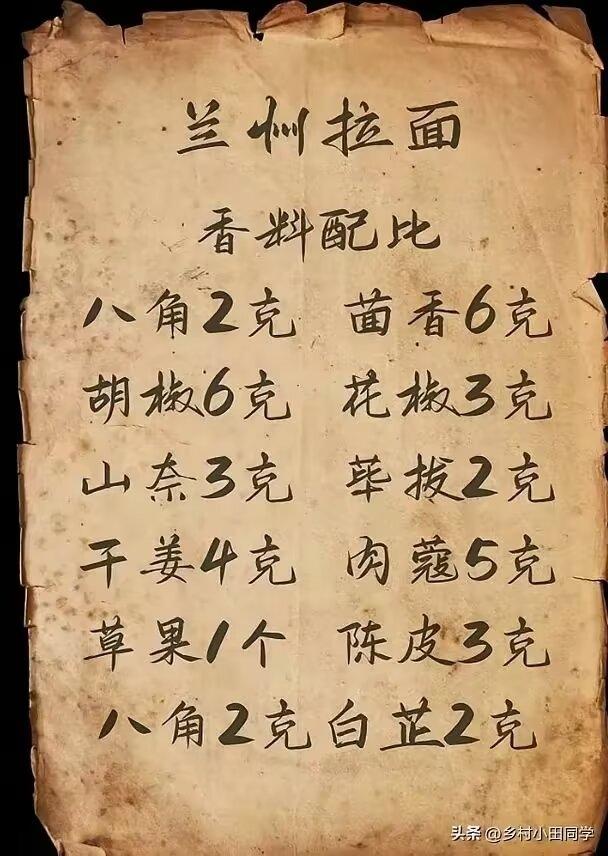 兰州拉面
香料配比
八角2克 茴香6克
胡椒6克 花椒3克
山奈3克 荜拔2克
干姜4克 肉蔻5克
草果1个 陈皮3克
八角2克白芷2克
头条 @乡村小田同学